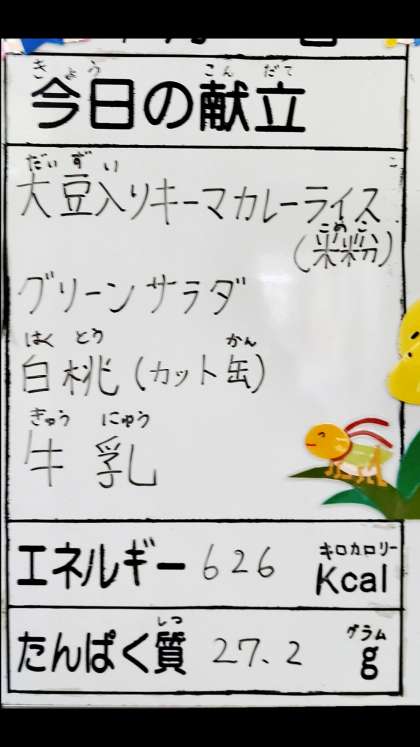 きょう こんだて
今日の献立
だいずい
大豆入りキーマカレーライス
こめこ
(米粉)
グリーンサラダ
はく とう かん
白桃(カット缶)
ぎゅう にゅう
牛乳
キロカロリー
エネルギー 626 Kcal
しつ グラム
たんぱく質 27.2 g